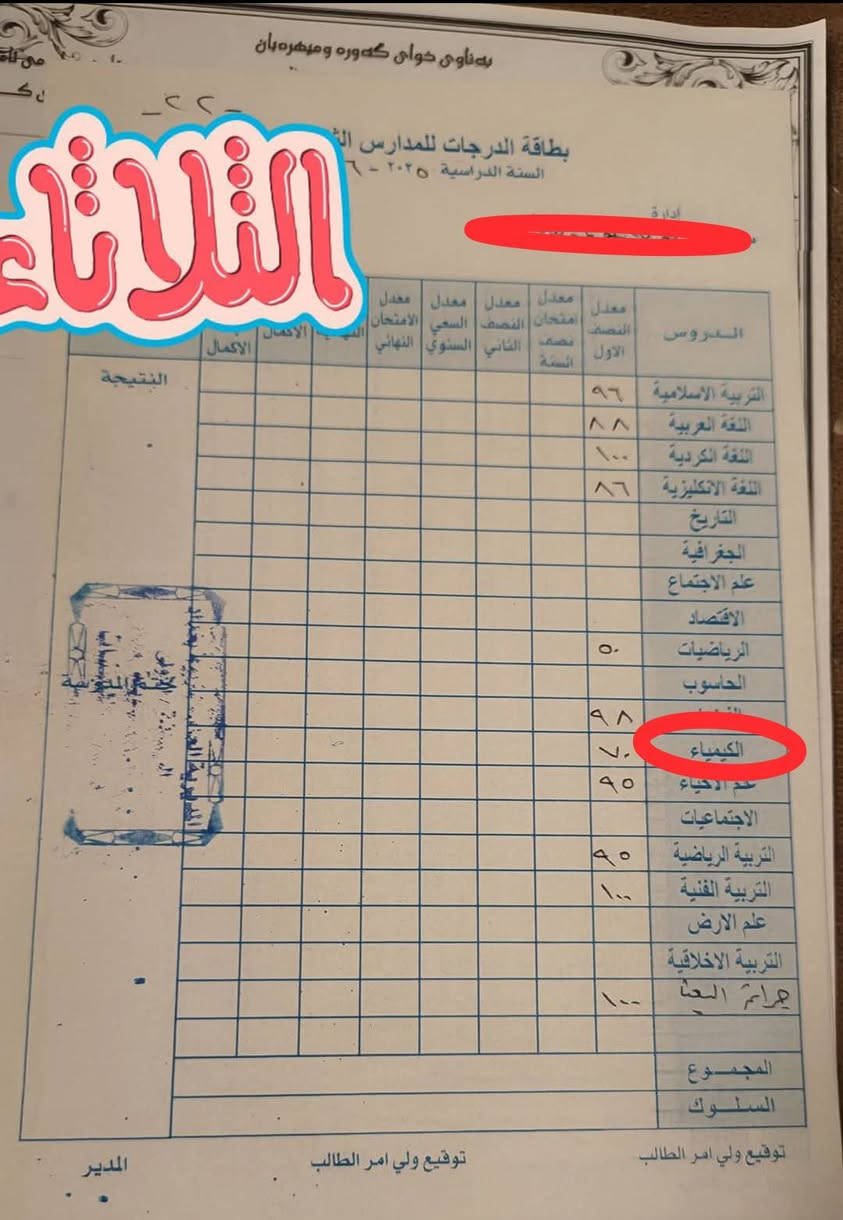 بەناوی خوای گەورە ومیهرەبان
_ ٢٢ _
بطاقة الدرجات للمدارس
السنة الدراسية ٢٠٢٥ - ٦
الثلاثاء
إدارة
الدروس | معدل النصف الاول | معدل امتحان نصف السنة | معدل النصف الثاني | معدل السعي السنوي | معدل الامتحان النهائي | الاكمال | الاكمال
النتيجة
التربية الاسلامية ٩٦
اللغة العربية ٨٨
اللغة الكردية ١٠٠
اللغة الانكليزية ٨٦
التاريخ
الجغرافية
علم الاجتماع
الاقتصاد
الرياضيات ٥٠
الحاسوب
٩٨
الكيمياء ٧٠
علم الاحياء ٩٥
الاجتماعيات
التربية الرياضية ٩٥
التربية الفنية ١٠٠
علم الارض
التربية الاخلاقية
جرائم البعث ١٠٠
المجموع
السلوك
توقيع ولي امر الطالب
توقيع ولي امر الطالب
المدير